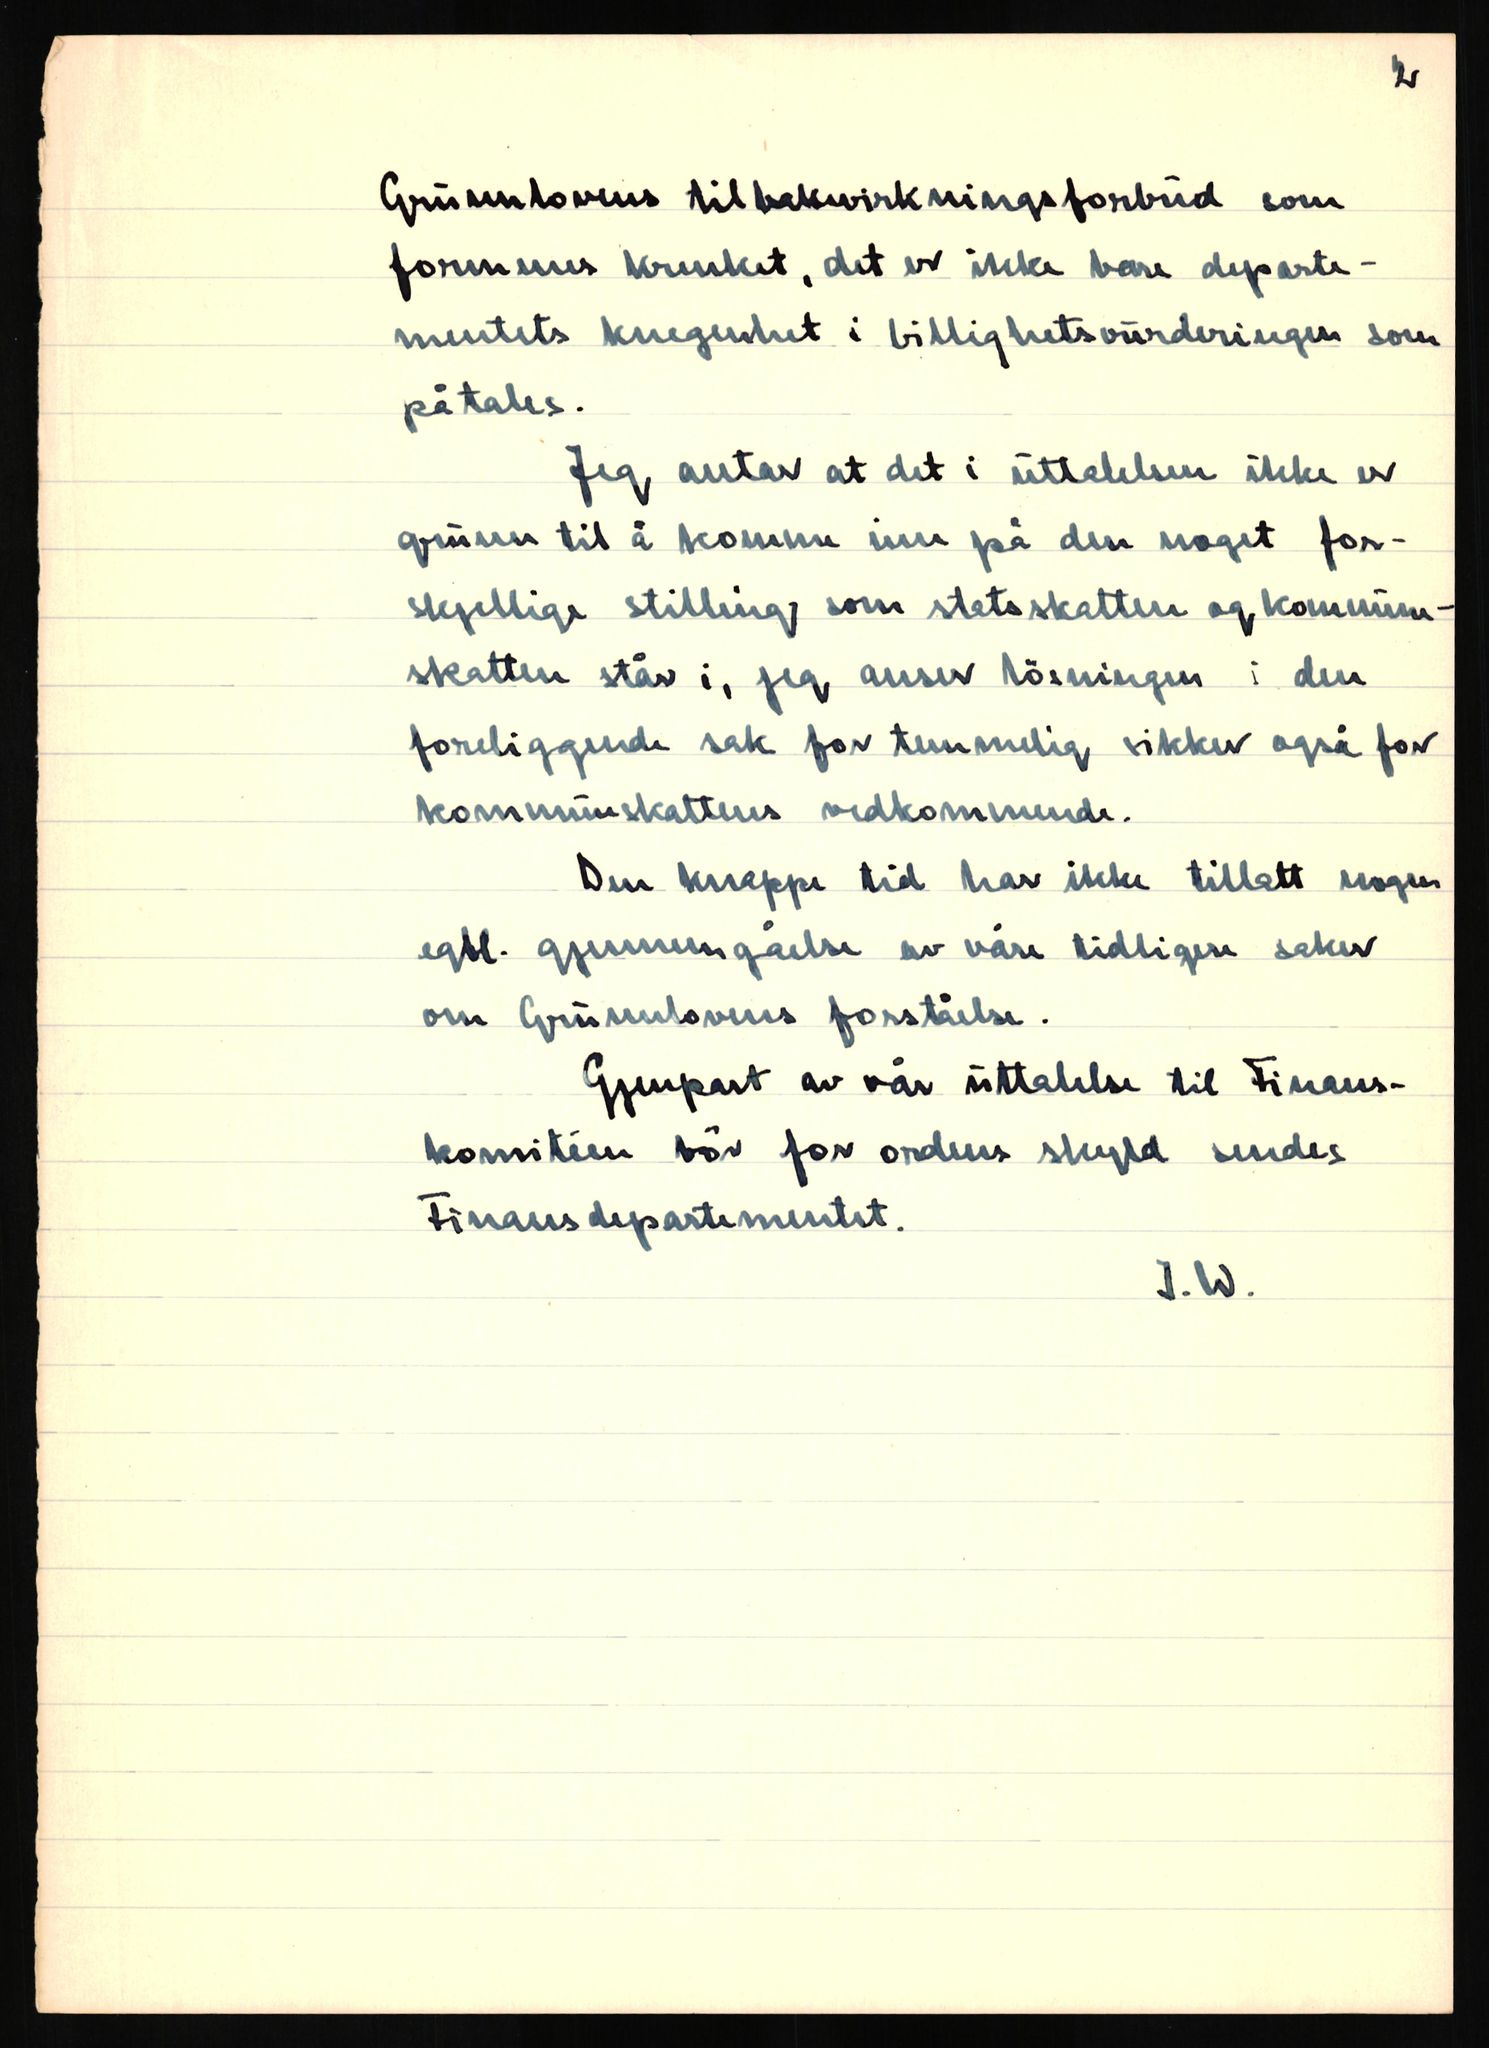 2
Grunnlovens tilbakevirkningsforbud som
formenes krenket, det er ikke bare departe-
mentets knegenhet i billighetsvurderingen som
påtales.
Jeg antar at det i uttalelsen ikke er
grunn til å komme inn på den noget for-
skjellige stilling som statsskatten og kommune-
skatten står i, jeg anser lösningen i den
foreliggende sak for temmelig sikker også for
kommuneskattens vedkommende.
Den knappe tid har ikke tillatt nogen
egtl. gjennemgåelse av våre tidligere saker
om Grunnlovens forståelse.
Gjenpart av vår uttalelse til Finans-
komitéen bör for ordens skyld sendes
Finansdepartementet.
J.W.